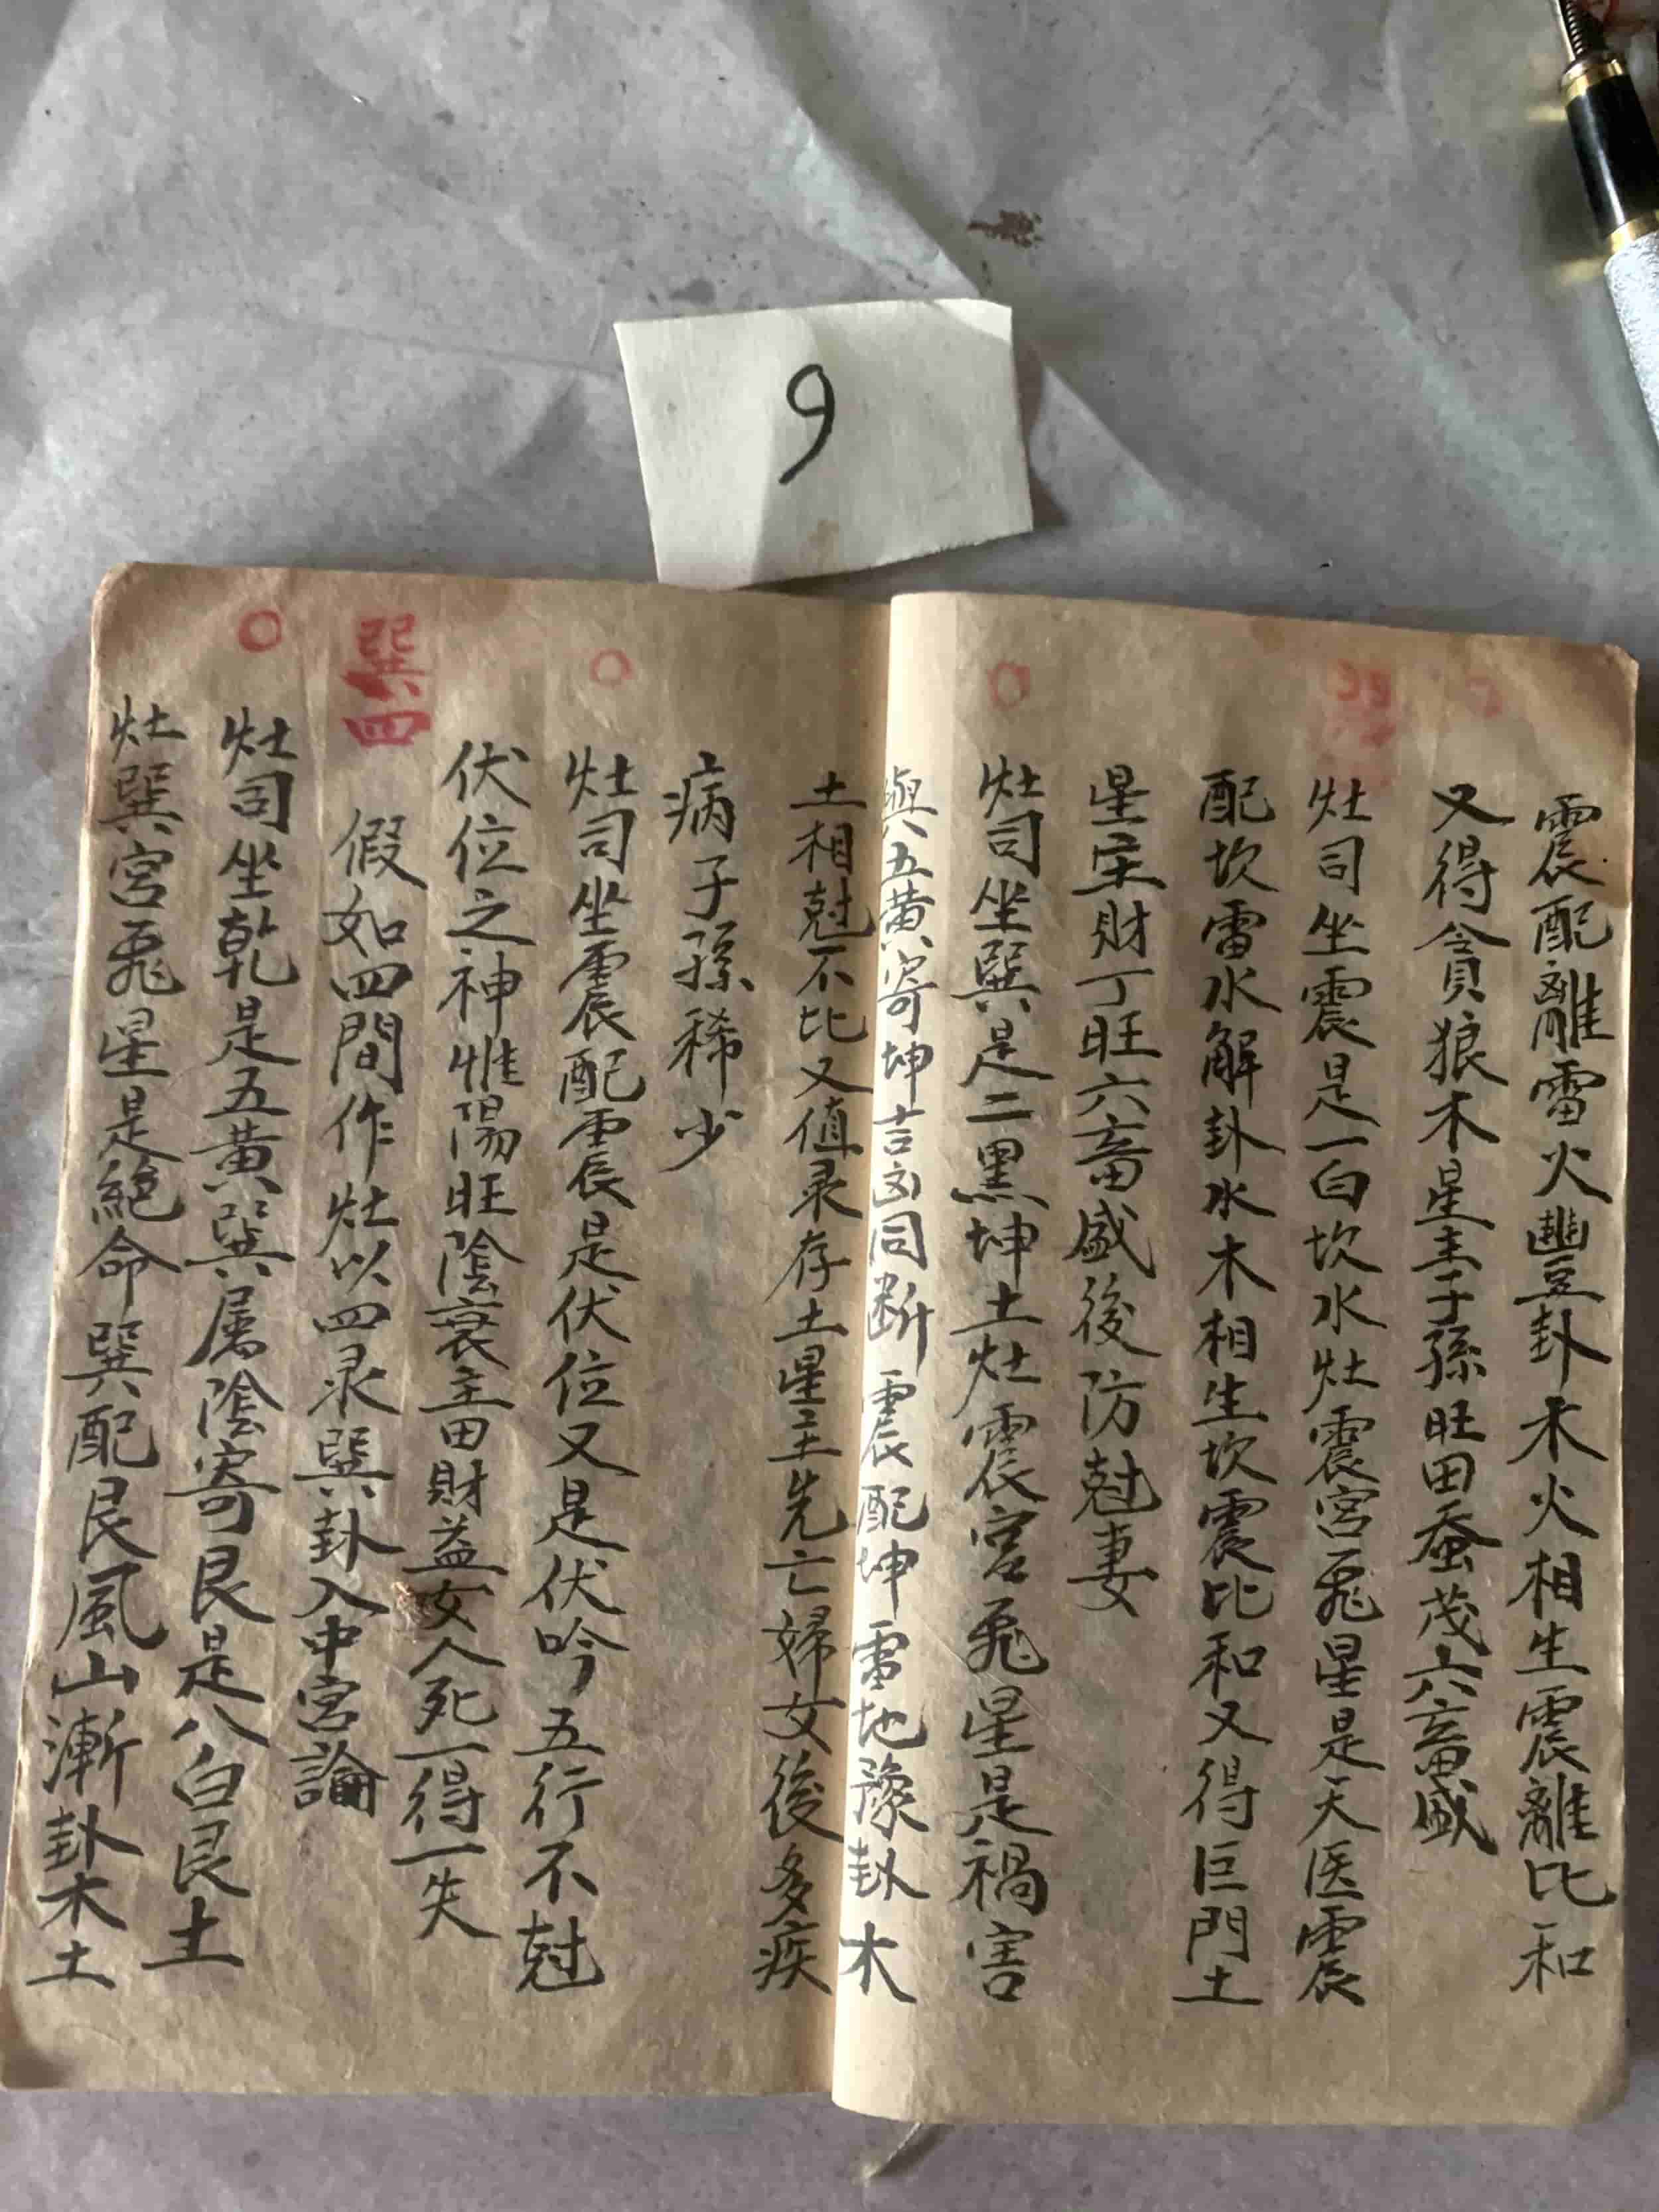 9
震配離雷火豐卦木火相生震離比和
又得貪狼木星主子孫旺田蚕茂六畜盛
灶司坐震是一白坎水灶震宮飛星是天医震
配坎雷水解卦水木相生坎震比和又得巨門土
星宝財丁旺六畜盛後防尅妻
灶司坐巽是二黑坤土灶震宮飛星是禍害
與五黃寄坤吉凶同断震配坤雷地豫卦木
土相尅不比又值彔存土星主先亡婦女後多疾
病子孫稀少
灶司坐震配震是伏位又是伏吟五行不尅
伏位之神惟陽旺陰衰主田財益女人死一得一失
巽四
假如四間作灶以四彔巽卦入中宮論
灶司坐乾是五黃巽屬陰寄艮是八白艮土
灶巽宮飛星是絕命巽配艮風山漸卦木土